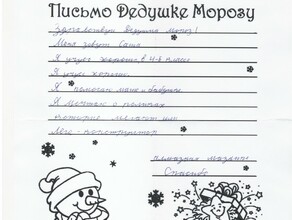 Письмо Дедушке Морозу
Здравствуй Дедушка мороз!
Меня зовут Саша
Я учусь хорошо в 4-в классе
Я учусь хорошо.
Я помогаю маме и бабушке
Я мечтаю о роликах
или
Лего - конструктор
Спасибо